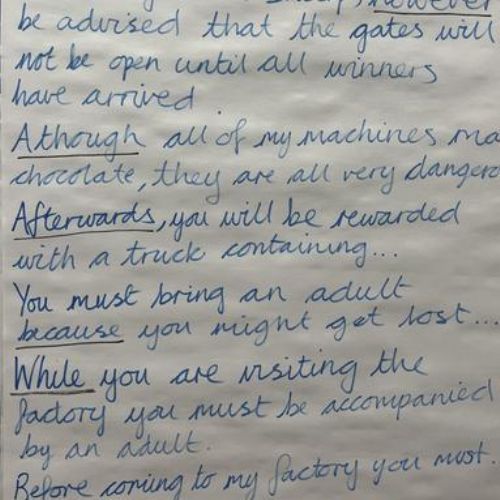 however
be advised that the gates will
not be open until all winners
have arrived.
Athough all of my machines ma
chocolate, they are all very dangero
Afterwards, you will be rewarded
with a truck containing...
You must bring an adult
because you might get lost...
While you are visiting the
factory you must be accompanied
by an adult.
Before coming to my factory you must.